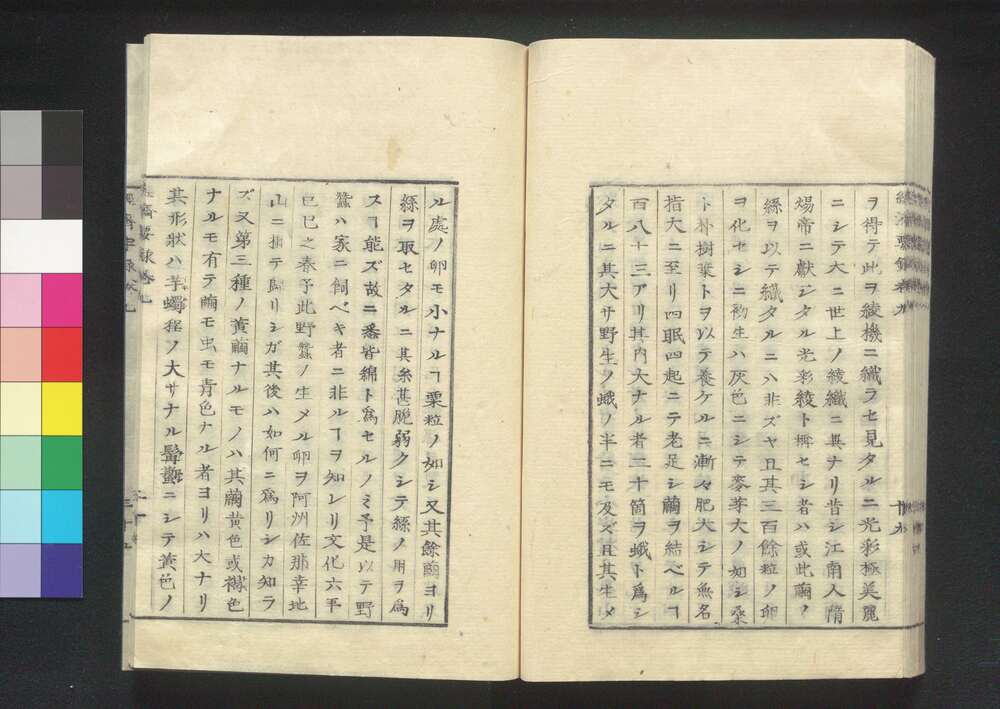 ヲ得テ此ヲ綾機ニ織ラセ見タルニ光彩極美麗
ニシテ大ニ世上ノ綾織ニ異ナリ昔シ江南人隋
煬帝ニ獻ジタル光彩綾ト稱セシ者ハ或此繭ノ
絲ヲ以テ織タルニハ非ズヤ且其三百餘粒ノ卵
ヲ化セシニ初生ハ灰色ニシテ麥芽大ノ如シ桑
ト朴樹葉トヲ以テ養ケルニ漸々肥大シテ無名
指大ニ至リ四眠四起ニテ老足シ繭ヲ結ベルヿ
百八十三アリ其内大ナル者三十箇ヲ蛾ト爲シ
タルニ其大サ野生ノ蛾ノ半ニモ及ズ且其生メ
ル處ノ卵モ小ナルヿ粟粒ノ如シ又其餘繭ヨリ
絲ヲ取セタルニ其糸甚脆弱クシテ絲ノ用ヲ爲
スヿ能ズ故ニ悉皆綿ト爲セルノミ予是以テ野
蠶ハ家ニ飼ベキ者ニ非ルヿヲ知レリ文化六年
己巳之春予此野蠶ノ生メル卵ヲ阿州佐那幸地
山ニ捨テ歸リシガ其後ハ如何ニ爲リシカ知ラ
ズ又第三種ノ黄繭ナルモノハ其繭黄色或褐色
ナルモ有テ繭モ虫モ青色ナル者ヨリハ大ナリ
其形狀ハ芋蠋程ノ大サナルニシテ黄色ノ